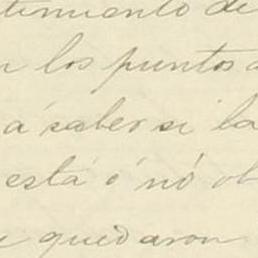 tenimiento de
n los puntos a
á saber si la
está ó nó ob
e quedaron